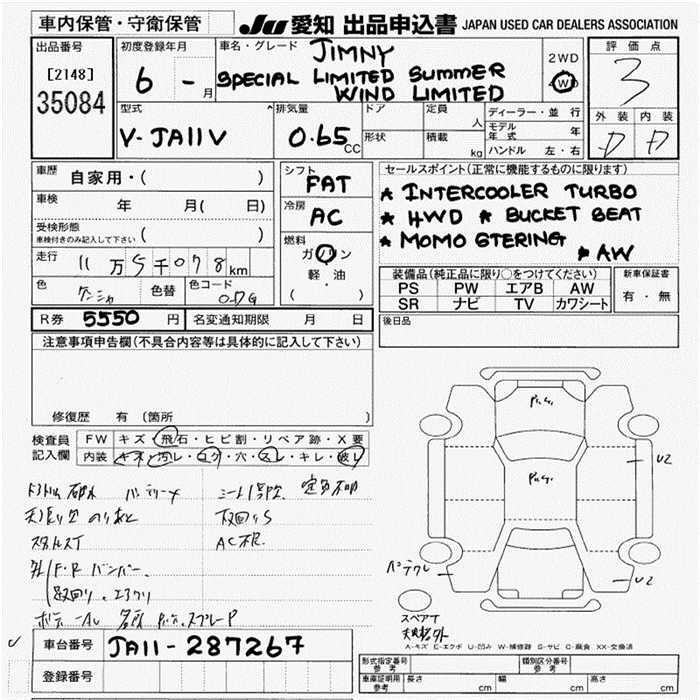 車内保管・守衛保管
JU 愛知 出品申込書 JAPAN USED CAR DEALERS ASSOCIATION
出品番号
[2148]
35084
初度登録年月
6 - 月
車名・グレード
JIMNY
SPECIAL LIMITED SUMMER
WIND LIMITED
2WD
4WD
評価点
3
外装 内装
D D
型式
V-JA11V
排気量
0.65 CC
ドア
形状
定員
人
積載
kg
ディーラー・並行
モデル年式 年
ハンドル 左・右
車歴
自家用・( )
車検 年 月( 日)
受検形態
車検付きのみ記入して下さい ( )
走行
11万5千078km
色
色替
色コード
シフト
FAT
冷房
AC
燃料
ガソリン
軽油
( )
セールスポイント(正常に機能するものに限ります)
★ INTERCOOLER TURBO
★ HWD ★ BUCKET SEAT
★ MOMO STERING
★ AW
装備品(純正品に限り○をつけてください)
PS PW エアB AW
SR ナビ TV カワシート
新車保証書
有・無
R券 5550 円
名変通知期限 月 日
後日品
注意事項申告欄(不具合内容等は具体的に記入して下さい)
修復歴 有 (箇所 )
検査員
記入欄
FW キズ・飛石・ヒビ割・リペア跡・X要
内装 キズ・汚レ・コゲ・穴・スレ・キレ・破レ
定員不明
AC不良
F・R バンパー
P.u.G.
P.u.G.
U2
U2
スペアT
A-キズ E-エクボ U-凹み W-補修跡 S-サビ C-腐食 XX-交換済
車台番号 JA11-287267
登録番号
形式指定番号
参考
類別区分番号
参考
車庫証明用
参考
長さ cm 幅 cm 高さ cm